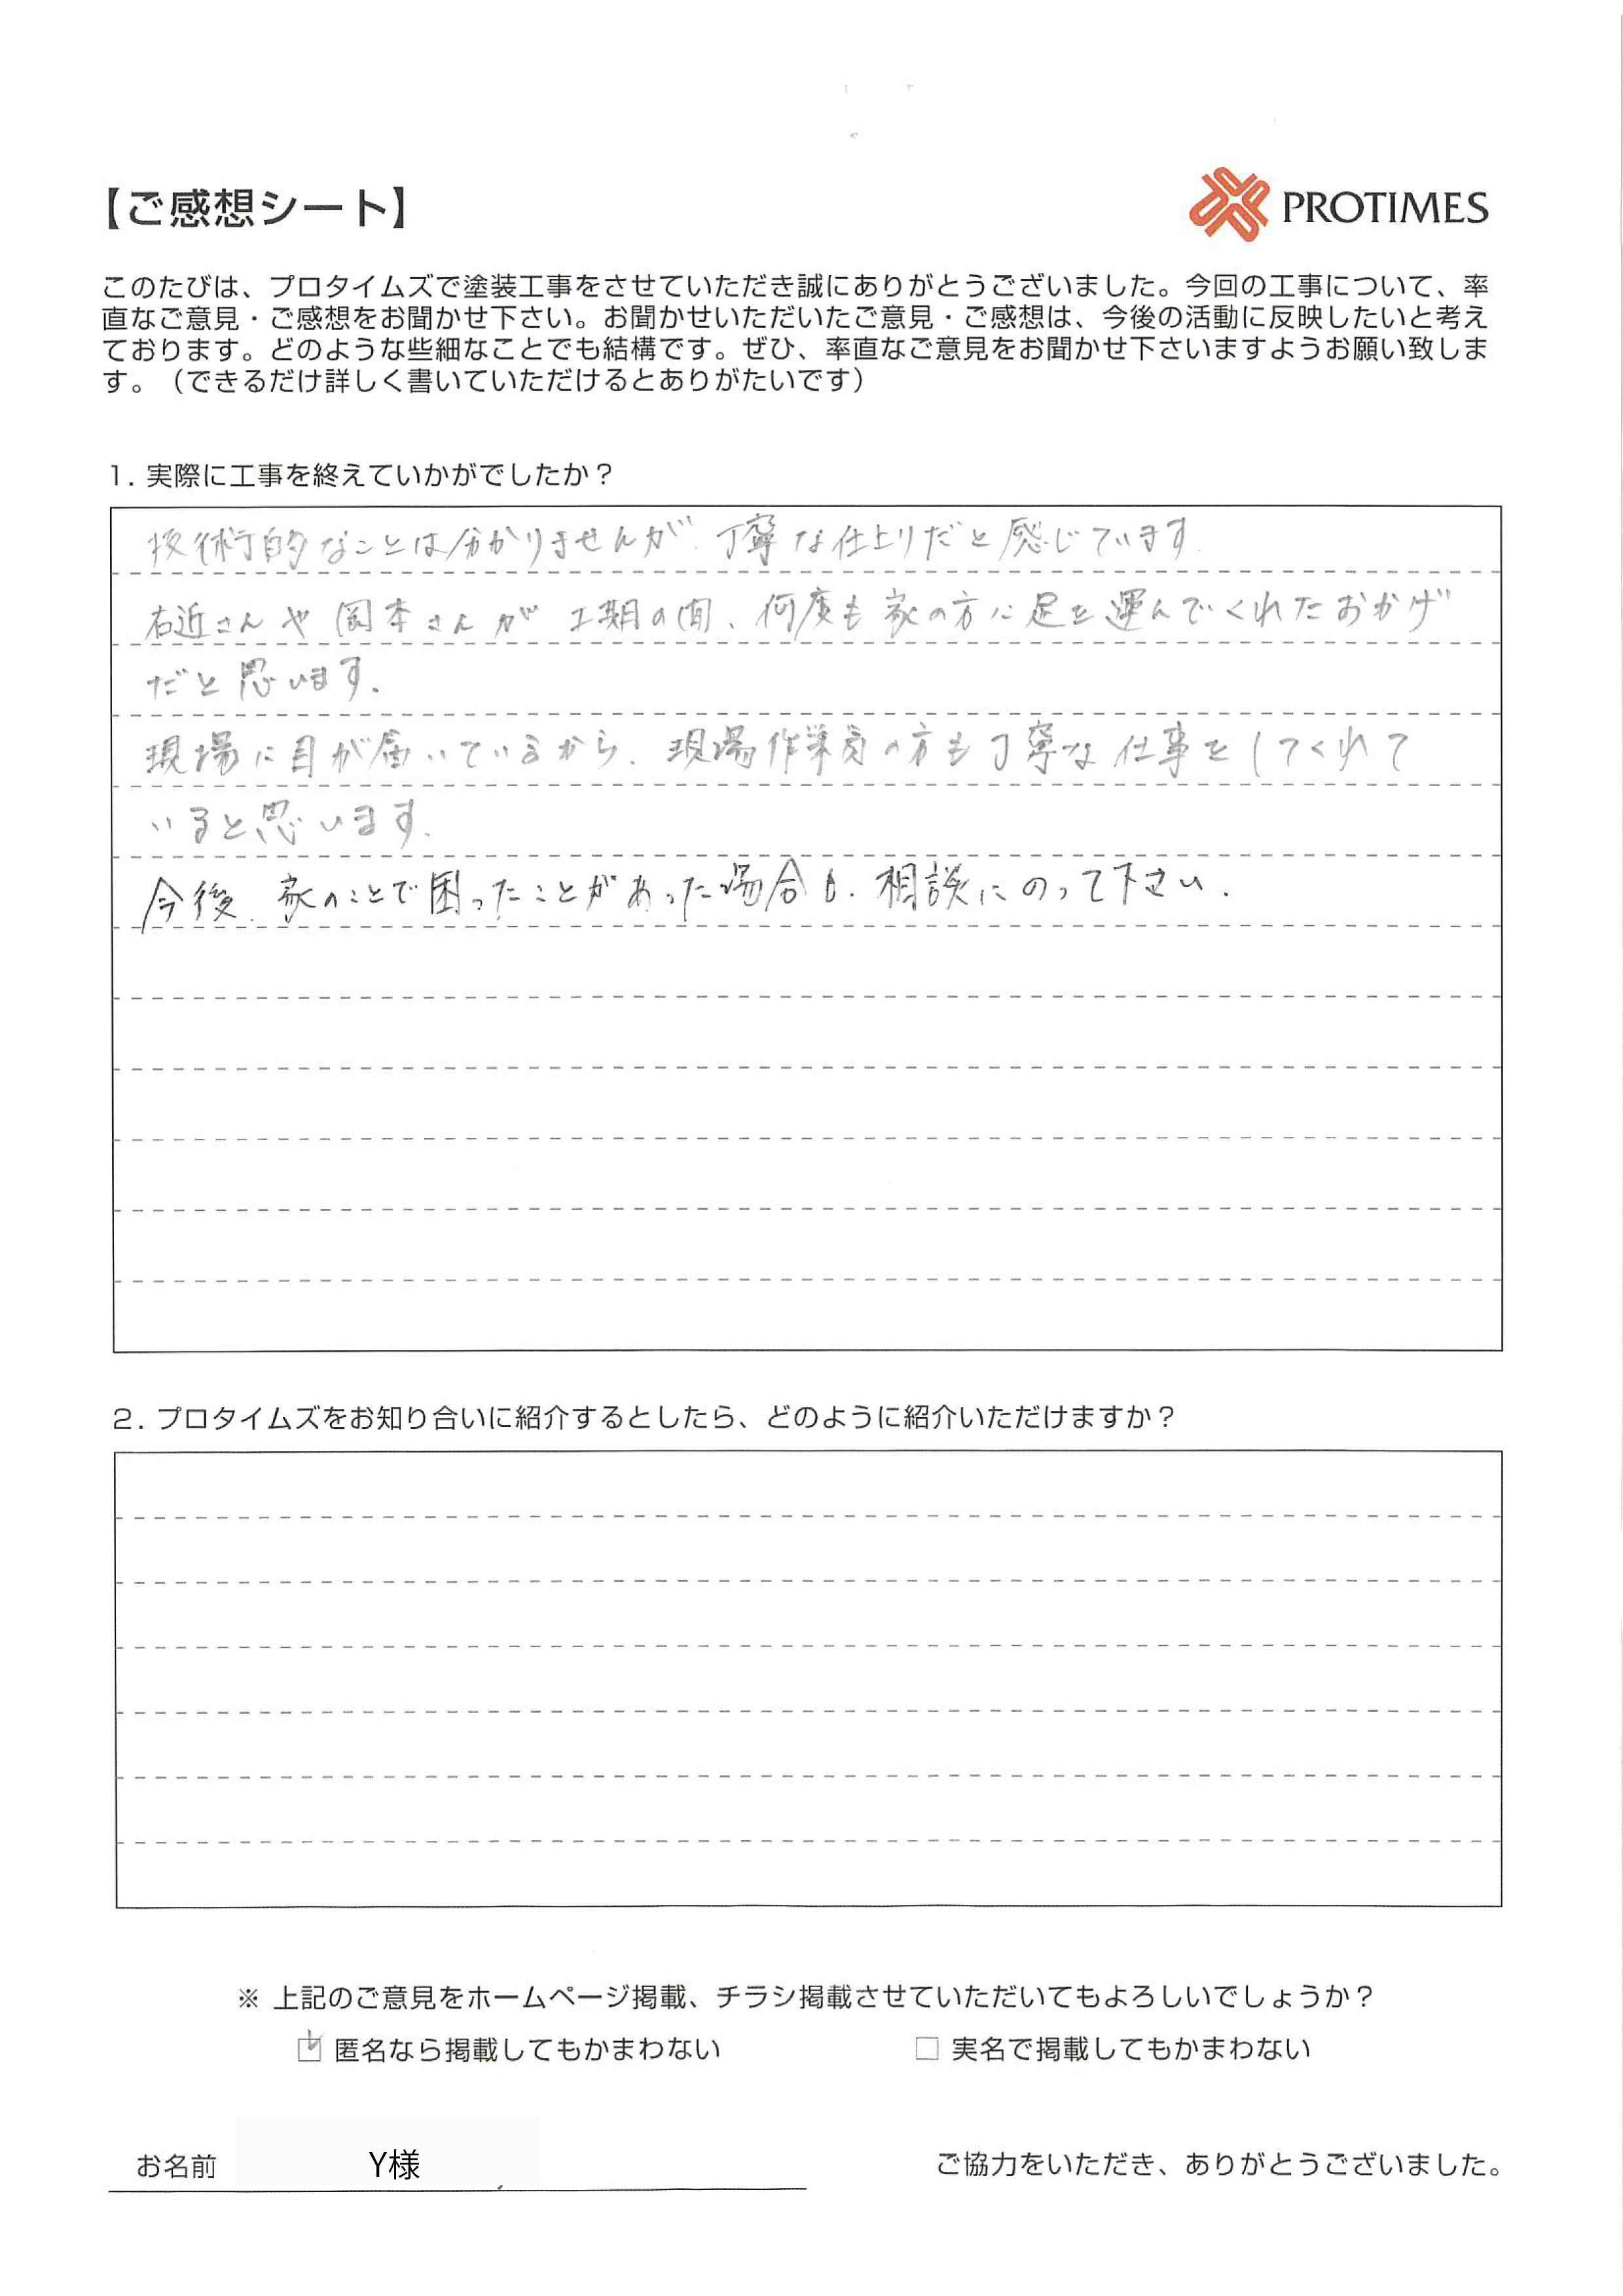 【ご感想シート】
PROTIMES
このたびは、プロタイムズで塗装工事をさせていただき誠にありがとうございました。今回の工事について、率
直なご意見・ご感想をお聞かせ下さい。お聞かせいただいたご意見・ご感想は、今後の活動に反映したいと考え
ております。どのような些細なことでも結構です。ぜひ、率直なご意見をお聞かせ下さいますようお願い致しま
す。（できるだけ詳しく書いていただけるとありがたいです）
1. 実際に工事を終えていかがでしたか？
技術的なことは分かりませんが、丁寧な仕上りだと感じています。
右近さんや岡本さんが工期の間、何度も家の方に足を運んでくれたおかげ
だと思います。
現場に目が届いているから、現場作業員の方も丁寧な仕事をしてくれて
いると思います。
今後、家のことで困ったことがあった場合も、相談にのって下さい。
2. プロタイムズをお知り合いに紹介するとしたら、どのように紹介いただけますか？
※ 上記のご意見をホームページ掲載、チラシ掲載させていただいてもよろしいでしょうか？
☑ 匿名なら掲載してもかまわない □ 実名で掲載してもかまわない
お名前 Y様 ご協力をいただき、ありがとうございました。